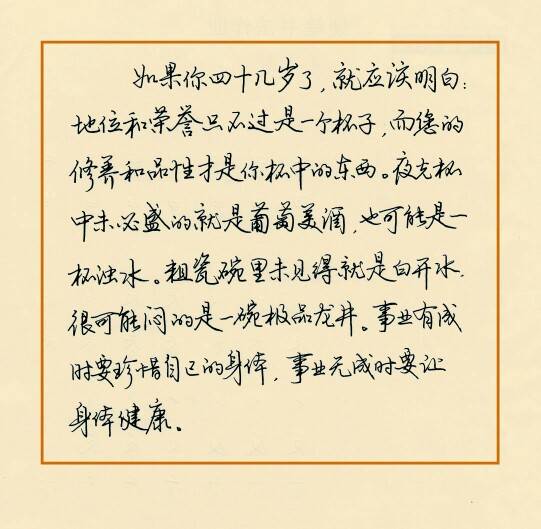 如果你四十几岁了，就应该明白：
地位和荣誉只不过是一个杯子，而您的
修养和品性才是你杯中的东西。夜光杯
中未必盛的就是葡萄美酒，也可能是一
杯浊水。粗瓷碗里未见得就是白开水，
很可能闷的是一碗极品龙井。事业有成
时要珍惜自己的身体，事业无成时要让
身体健康。